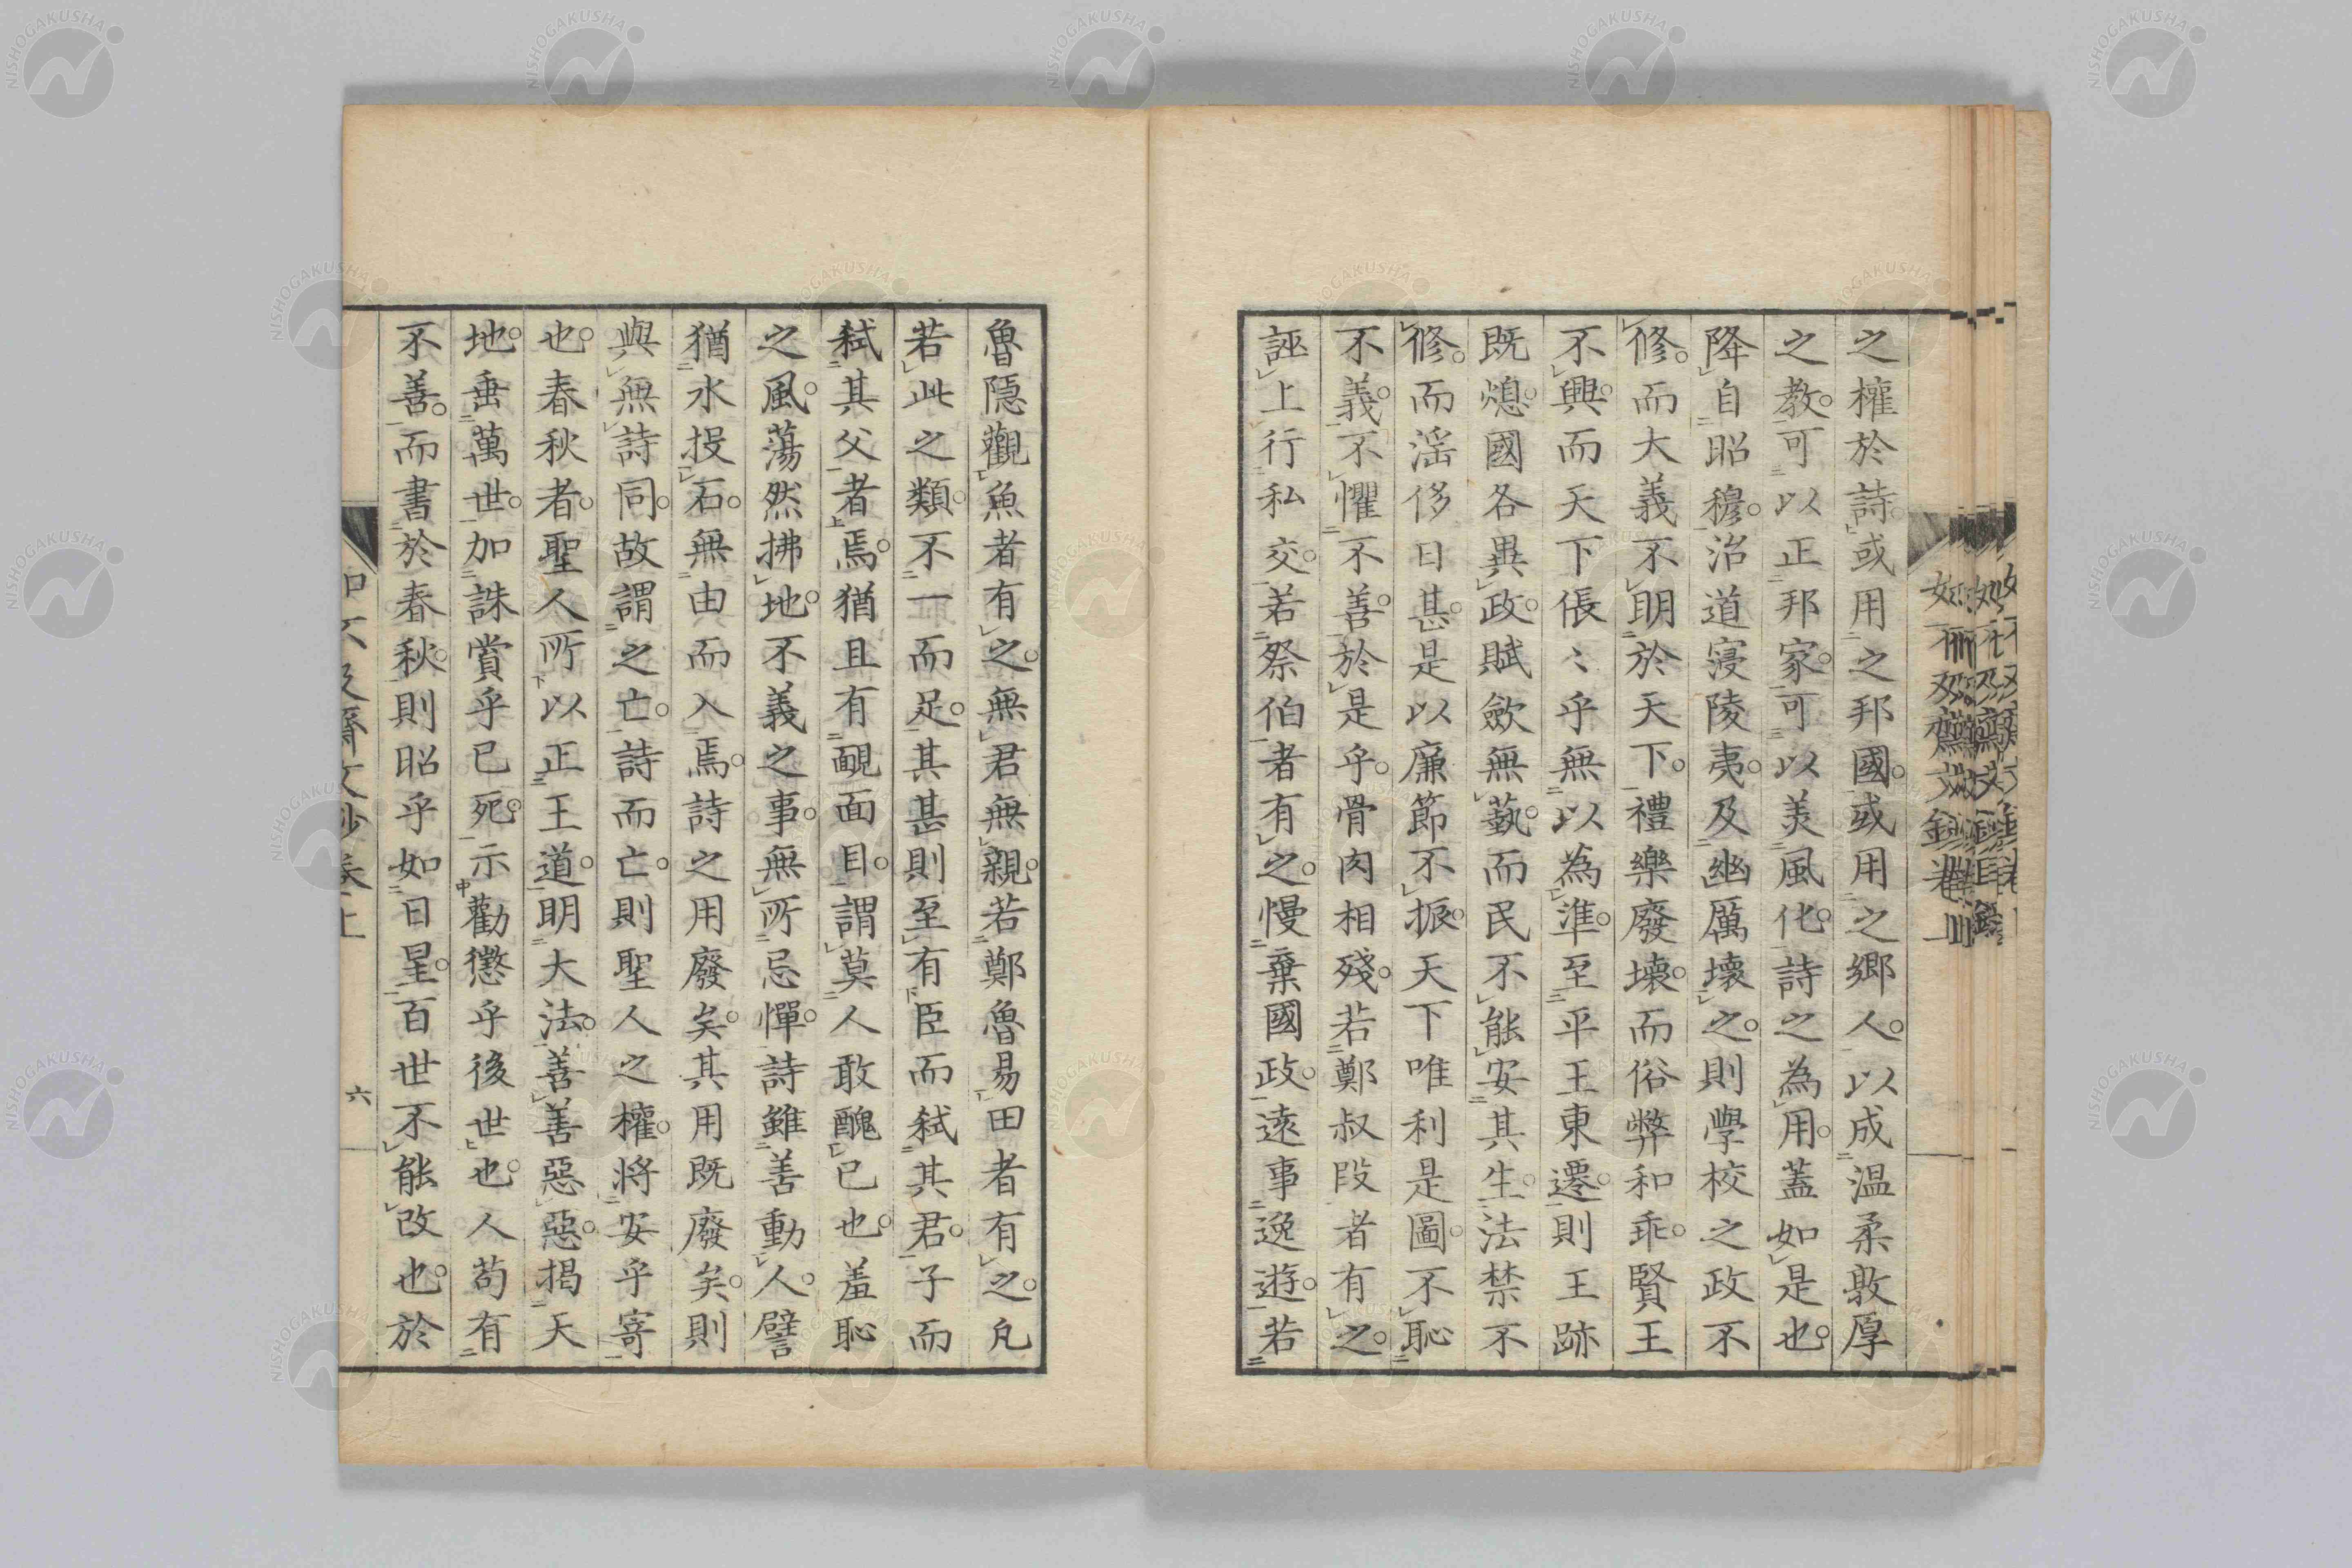 之權於詩或用之邦國或用之鄉人以成温柔敦厚
之教可以正邦家可以美風化詩之為用蓋如是也
降自昭穆治道寖陵夷及幽厲壞之則學校之政不
修而大義不明於天下禮樂廢壞而俗弊和乖賢王
不興而天下倀〻乎無以為準至平王東遷則王跡
既熄國各異政賦歛無藝而民不能安其生法禁不
修而滛侈日甚是以廉節不振天下唯利是圖不恥
不義不懼不善於是乎骨肉相殘若鄭叔段者有之
誣上行私交若祭伯者有之慢棄國政遠事逸遊若
魯隱觀魚者有之無君無親若鄭魯易田者有之凡
若此之類不一而足其甚則至有臣而弑其君子而
弑其父者焉猶且有靦面目謂莫人敢醜已也羞恥
之風蕩然拂地不義之事無所忌憚詩雖善動人譬
猶水投石無由而入焉詩之用廢矣其用既廢矣則
與無詩同故謂之亡詩而亡則聖人之權將安乎寄
也春秋者聖人所以正王道明大法善善惡惡揭天
地垂萬世加誅賞乎已死示勸懲乎後世也人苟有
不善而書於春秋則昭乎如日星百世不能改也於
如不及齋文鈔卷上
六
NISHOGAKUSHA